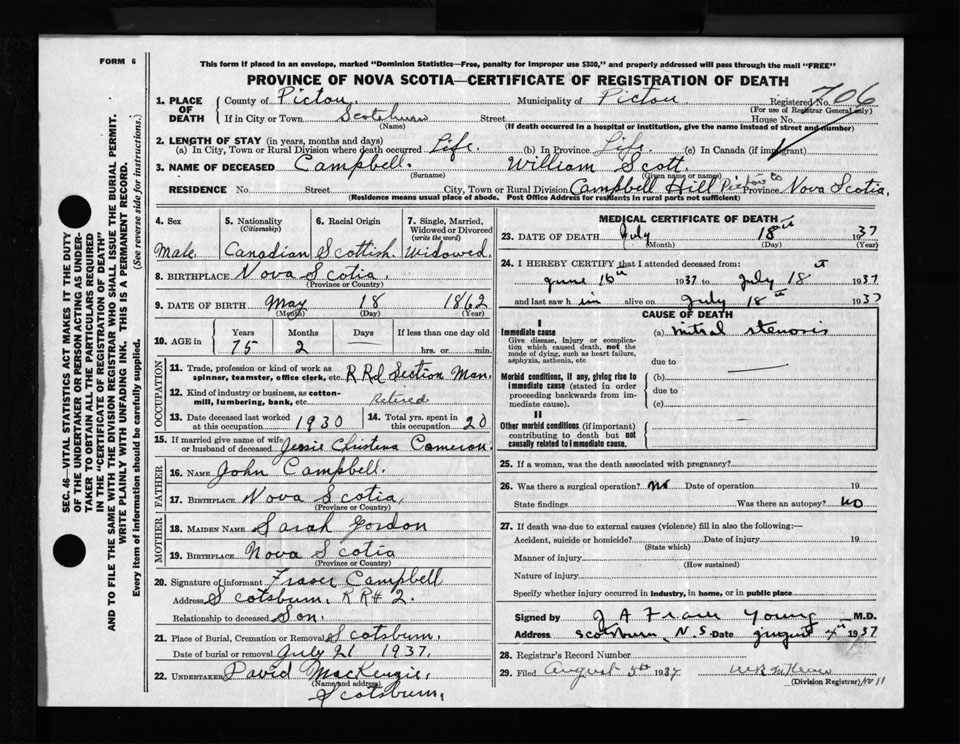 FORM 6
This form if placed in an envelope, marked "Dominion Statistics—Free, penalty for improper use $300," and properly addressed will pass through the mail "FREE"
PROVINCE OF NOVA SCOTIA—CERTIFICATE OF REGISTRATION OF DEATH
SEC. 46—VITAL STATISTICS ACT MAKES IT THE DUTY
OF THE UNDERTAKER OR PERSON ACTING AS UNDER-
TAKER TO OBTAIN ALL THE PARTICULARS REQUIRED
IN THE "CERTIFICATE OF REGISTRATION OF DEATH"
AND TO FILE THE SAME WITH THE DIVISION REGISTRAR WHO SHALL ISSUE THE BURIAL PERMIT.
WRITE PLAINLY WITH UNFADING INK. THIS IS A PERMANENT RECORD.
Every item of information should be carefully supplied. (See reverse side for instructions.)
1. PLACE OF DEATH County of Pictou Municipality of Pictou Registered No. 706
(For use of Registrar General only)
If in City or Town Street House No.
(Name) (If death occurred in a hospital or institution, give the name instead of street and number)
2. LENGTH OF STAY (in years, months and days)
(a) In City, Town or Rural Division where death occurred Life. (b) In Province Life. (c) In Canada (if immigrant)
3. NAME OF DECEASED Campbell. William Scott.
(Surname) (Given name or names)
RESIDENCE No. Street City, Town or Rural Division Campbell Hill Pictou Co Province Nova Scotia.
(Residence means usual place of abode. Post Office Address for residents in rural parts not sufficient)
4. Sex Male.
5. Nationality (Citizenship) Canadian
6. Racial Origin Scottish.
7. Single, Married, Widowed or Divorced (write the word) Widowed.
8. BIRTHPLACE Nova Scotia.
(Province or Country)
9. DATE OF BIRTH May 18 1862
(Month) (Day) (Year)
10. AGE in Years 75 Months 2 Days — If less than one day old hrs. or min.
OCCUPATION
11. Trade, profession or kind of work as spinner, teamster, office clerk, etc. R Rd Section Man.
12. Kind of industry or business, as cotton-mill, lumbering, bank, etc. Retired
13. Date deceased last worked at this occupation 1930
14. Total yrs. spent in this occupation 20
15. If married give name of wife or husband of deceased Jessie Christena Cameron.
FATHER
16. NAME John Campbell.
17. BIRTHPLACE Nova Scotia,
(Province or Country)
MOTHER
18. MAIDEN NAME Sarah Gordon
19. BIRTHPLACE Nova Scotia
(Province or Country)
20. Signature of informant Fraser Campbell
Address Scotsburn, R R # 2.
Relationship to deceased Son.
21. Place of Burial, Cremation or Removal Scotsburn.
Date of burial or removal July 21 1937.
22. UNDERTAKER David MacKenzie,
(Name and address)
Scotsburn,
MEDICAL CERTIFICATE OF DEATH
23. DATE OF DEATH July 18th 1937
(Month) (Day) (Year)
24. I HEREBY CERTIFY that I attended deceased from:
June 16th 1937 to July 18th 1937
and last saw him alive on July 18th 1937
CAUSE OF DEATH
I
Immediate cause
Give disease, injury or complication which caused death, not the mode of dying, such as heart failure, asphyxia, asthenia, etc
(a) mitral stenosis
due to
Morbid conditions, if any, giving rise to immediate cause (stated in order proceeding backwards from immediate cause).
(b)
due to
(c)
II
Other morbid conditions (if important) contributing to death but not causally related to immediate cause.
25. If a woman, was the death associated with pregnancy?
26. Was there a surgical operation? No Date of operation 19
State findings Was there an autopsy? No
27. If death was due to external causes (violence) fill in also the following:—
Accident, suicide or homicide? Date of injury 19
(State which)
Manner of injury
(How sustained)
Nature of injury
Specify whether injury occurred in industry, in home, or in public place
Signed by J A Fraser Young M.D.
Address Scotsburn, N.S. Date August 4th 1937
28. Registrar's Record Number
29. Filed August 5th 1937
(Division Registrar) No 11